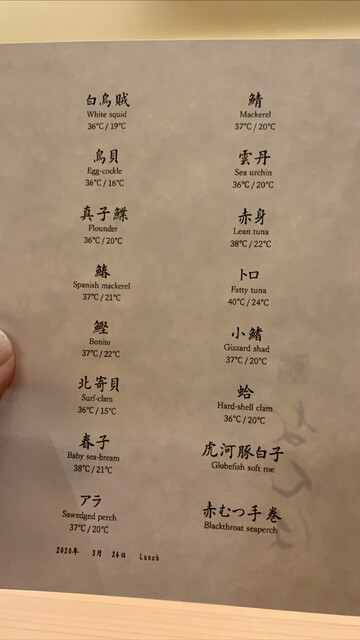 白烏賊
White squid
36℃/19℃
鳥貝
Egg-cockle
36℃/16℃
真子鰈
Flounder
36℃/20℃
鰆
Spanish mackerel
37℃/21℃
鰹
Bonito
37℃/22℃
北寄貝
Surf-clam
36℃/15℃
春子
Baby sea-bream
38℃/21℃
アラ
Sawedged perch
37℃/20℃
鯖
Mackerel
37℃/20℃
雲丹
Sea urchin
36℃/20℃
赤身
Lean tuna
38℃/22℃
トロ
Fatty tuna
40℃/24℃
小鰭
Gizzard shad
37℃/20℃
蛤
Hard-shell clam
36℃/20℃
虎河豚白子
Globefish soft roe
赤むつ手巻
Blackthroat seaperch
2020年 2月 24日 Lunch